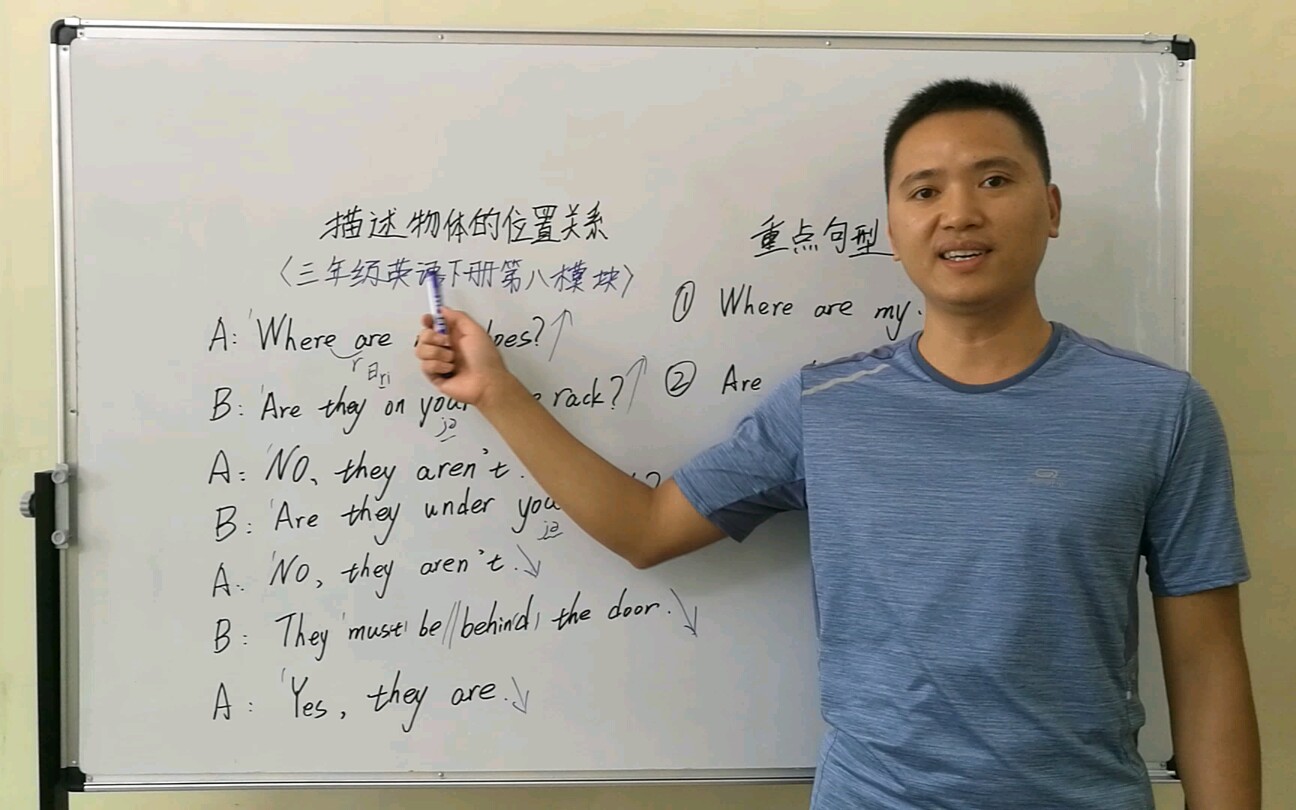 描述物体的位置关系
(三年级英语下册第八模块)
A: Where are oes?
B: Are they on your rack?
A: No, they aren't.
B: Are they under you ?
A: No, they aren't.
B: They must be behind the door.
A: Yes, they are.
重点句型
① Where are my
② Are